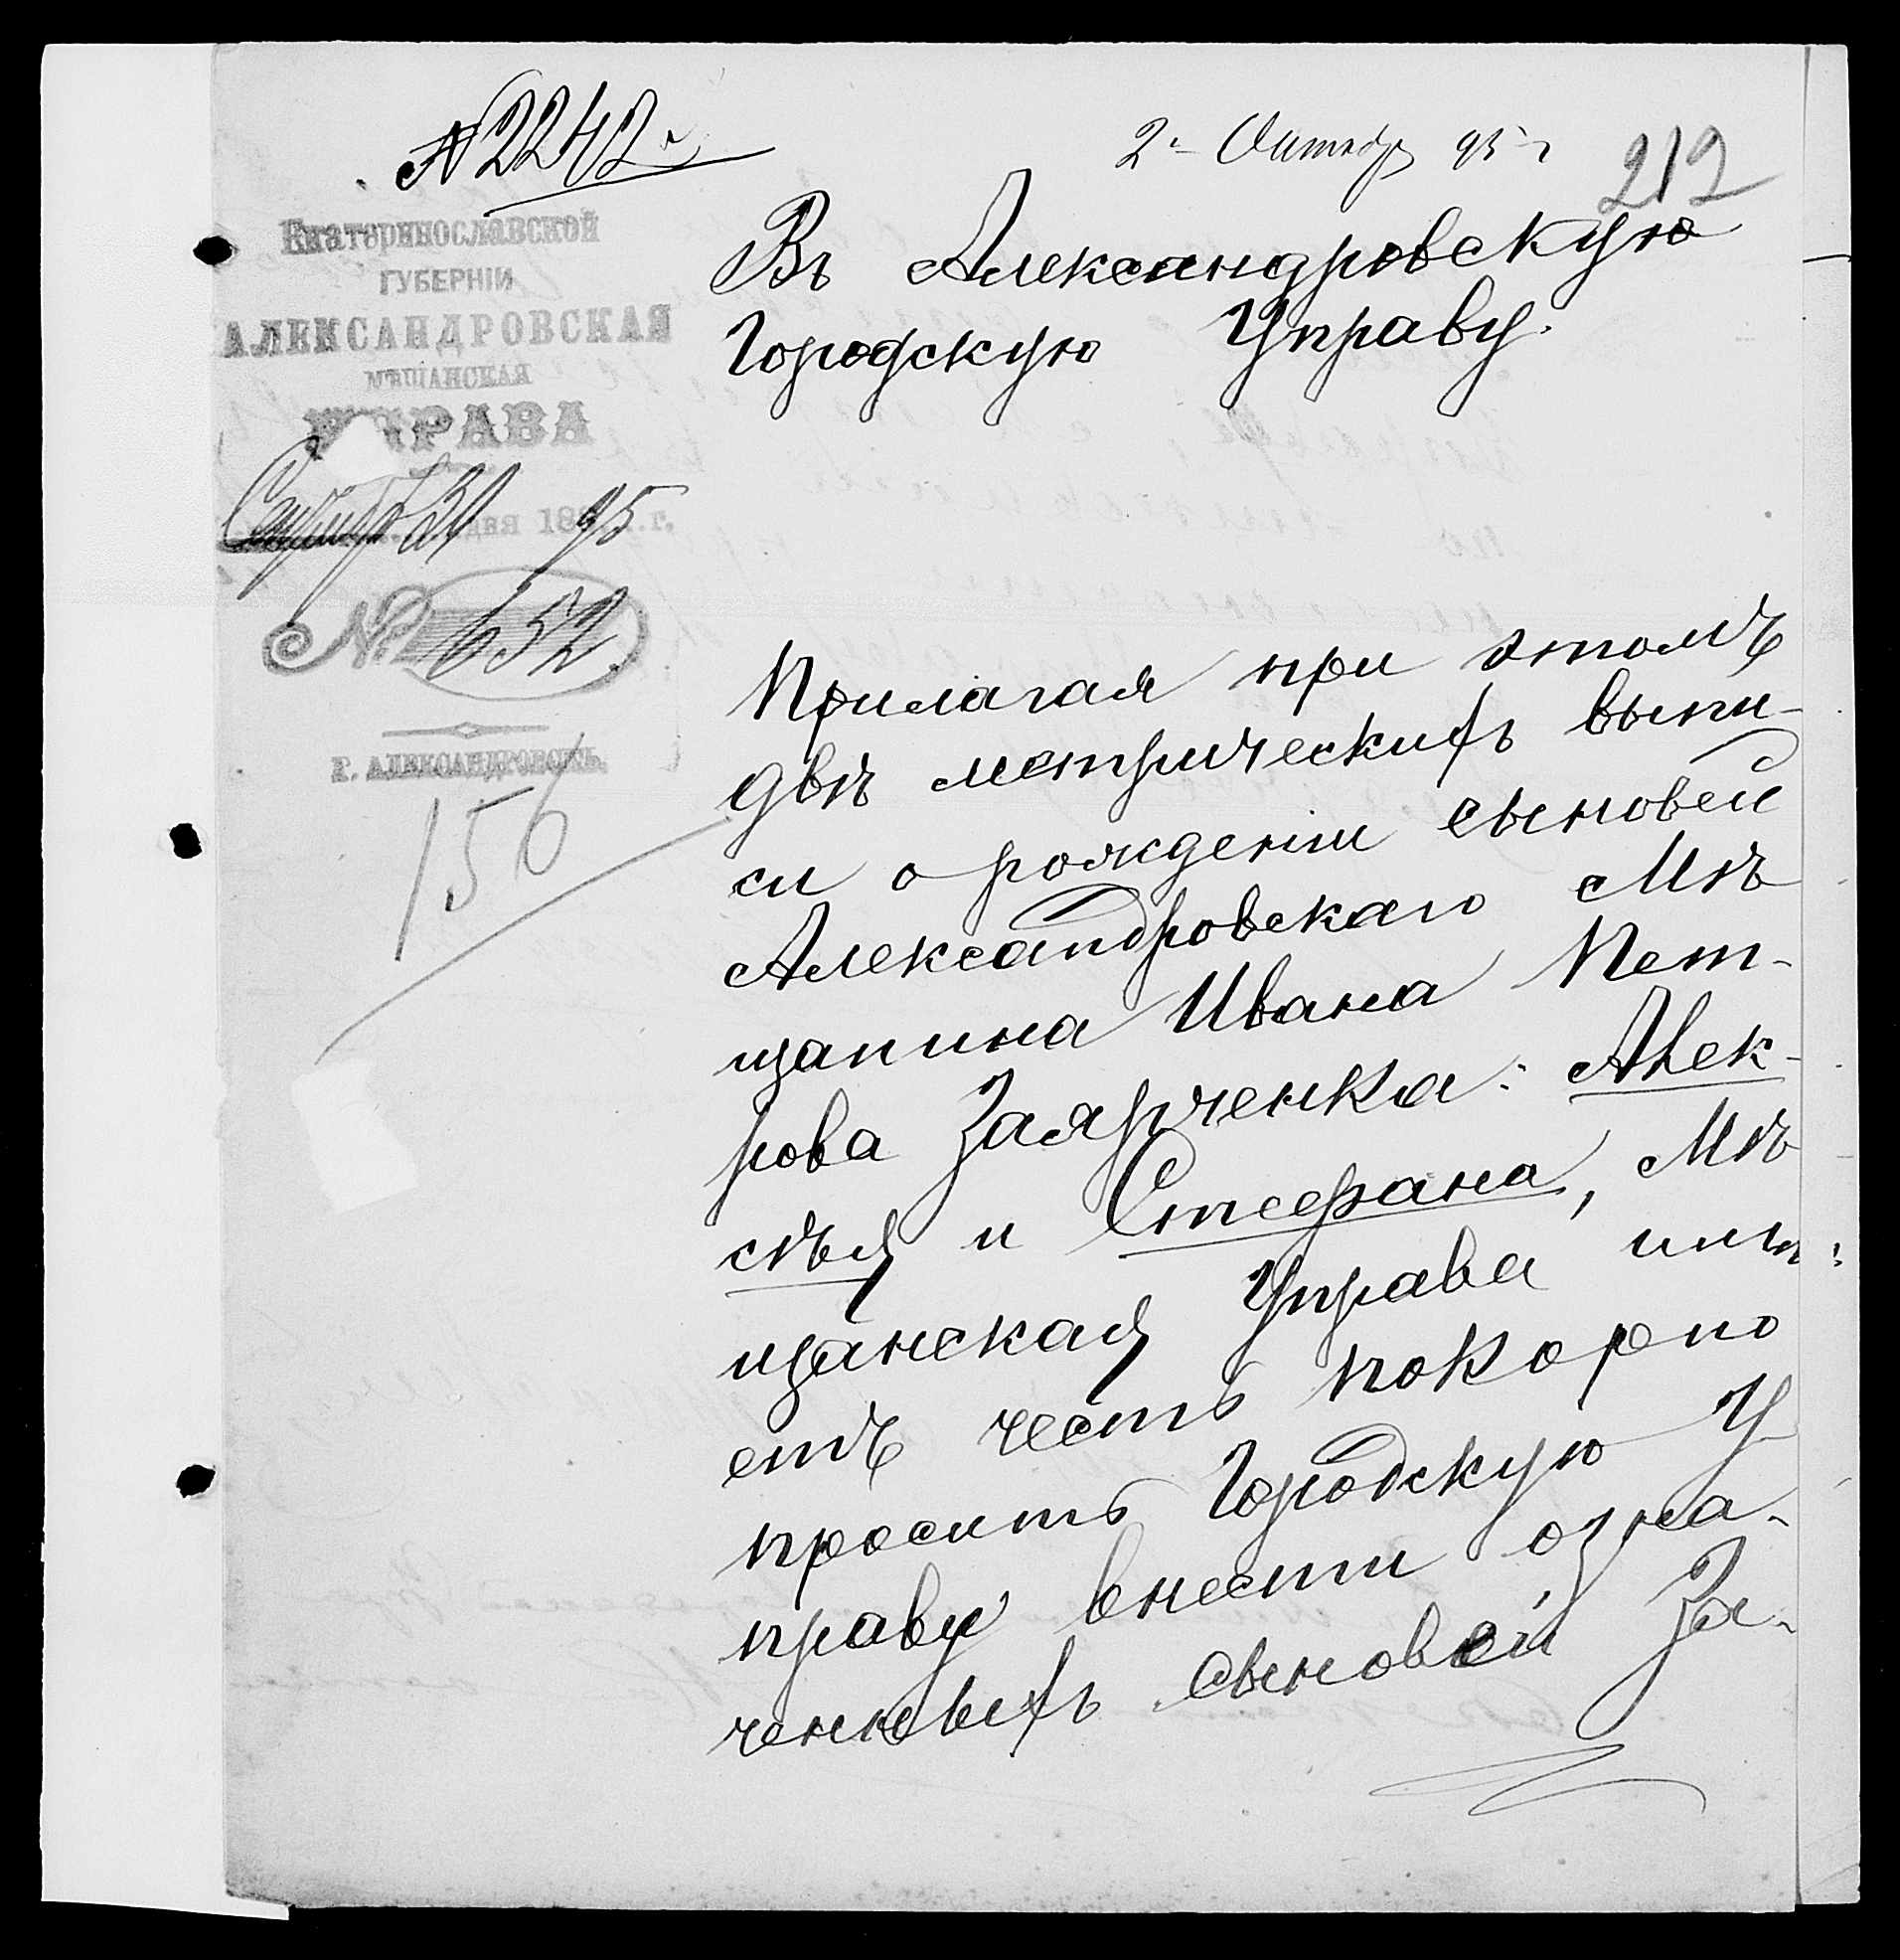 № 2242
2 Октября 95 г
212
Екатеринославской
ГУБЕРНІИ
АЛЕКСАНДРОВСКАЯ
МѢЩАНСКАЯ
УПРАВА
30 дня 1895 г.
№ 652
Г. АЛЕКСАНДРОВСКЪ.
156
Въ Александровскую
Городскую Управу.
Прилагая при этомъ
двѣ метрическихъ выпи-
си о рожденіи сыновей
Александровскаго Мѣ
щанина Ивана Пет-
рова Заярченка: Алек-
сѣя и Стефана, Мѣ
щанская Управа имѣ:
етъ честь покорно
просить Городскую У-
праву внести озна-
ченныхъ сыновей За-